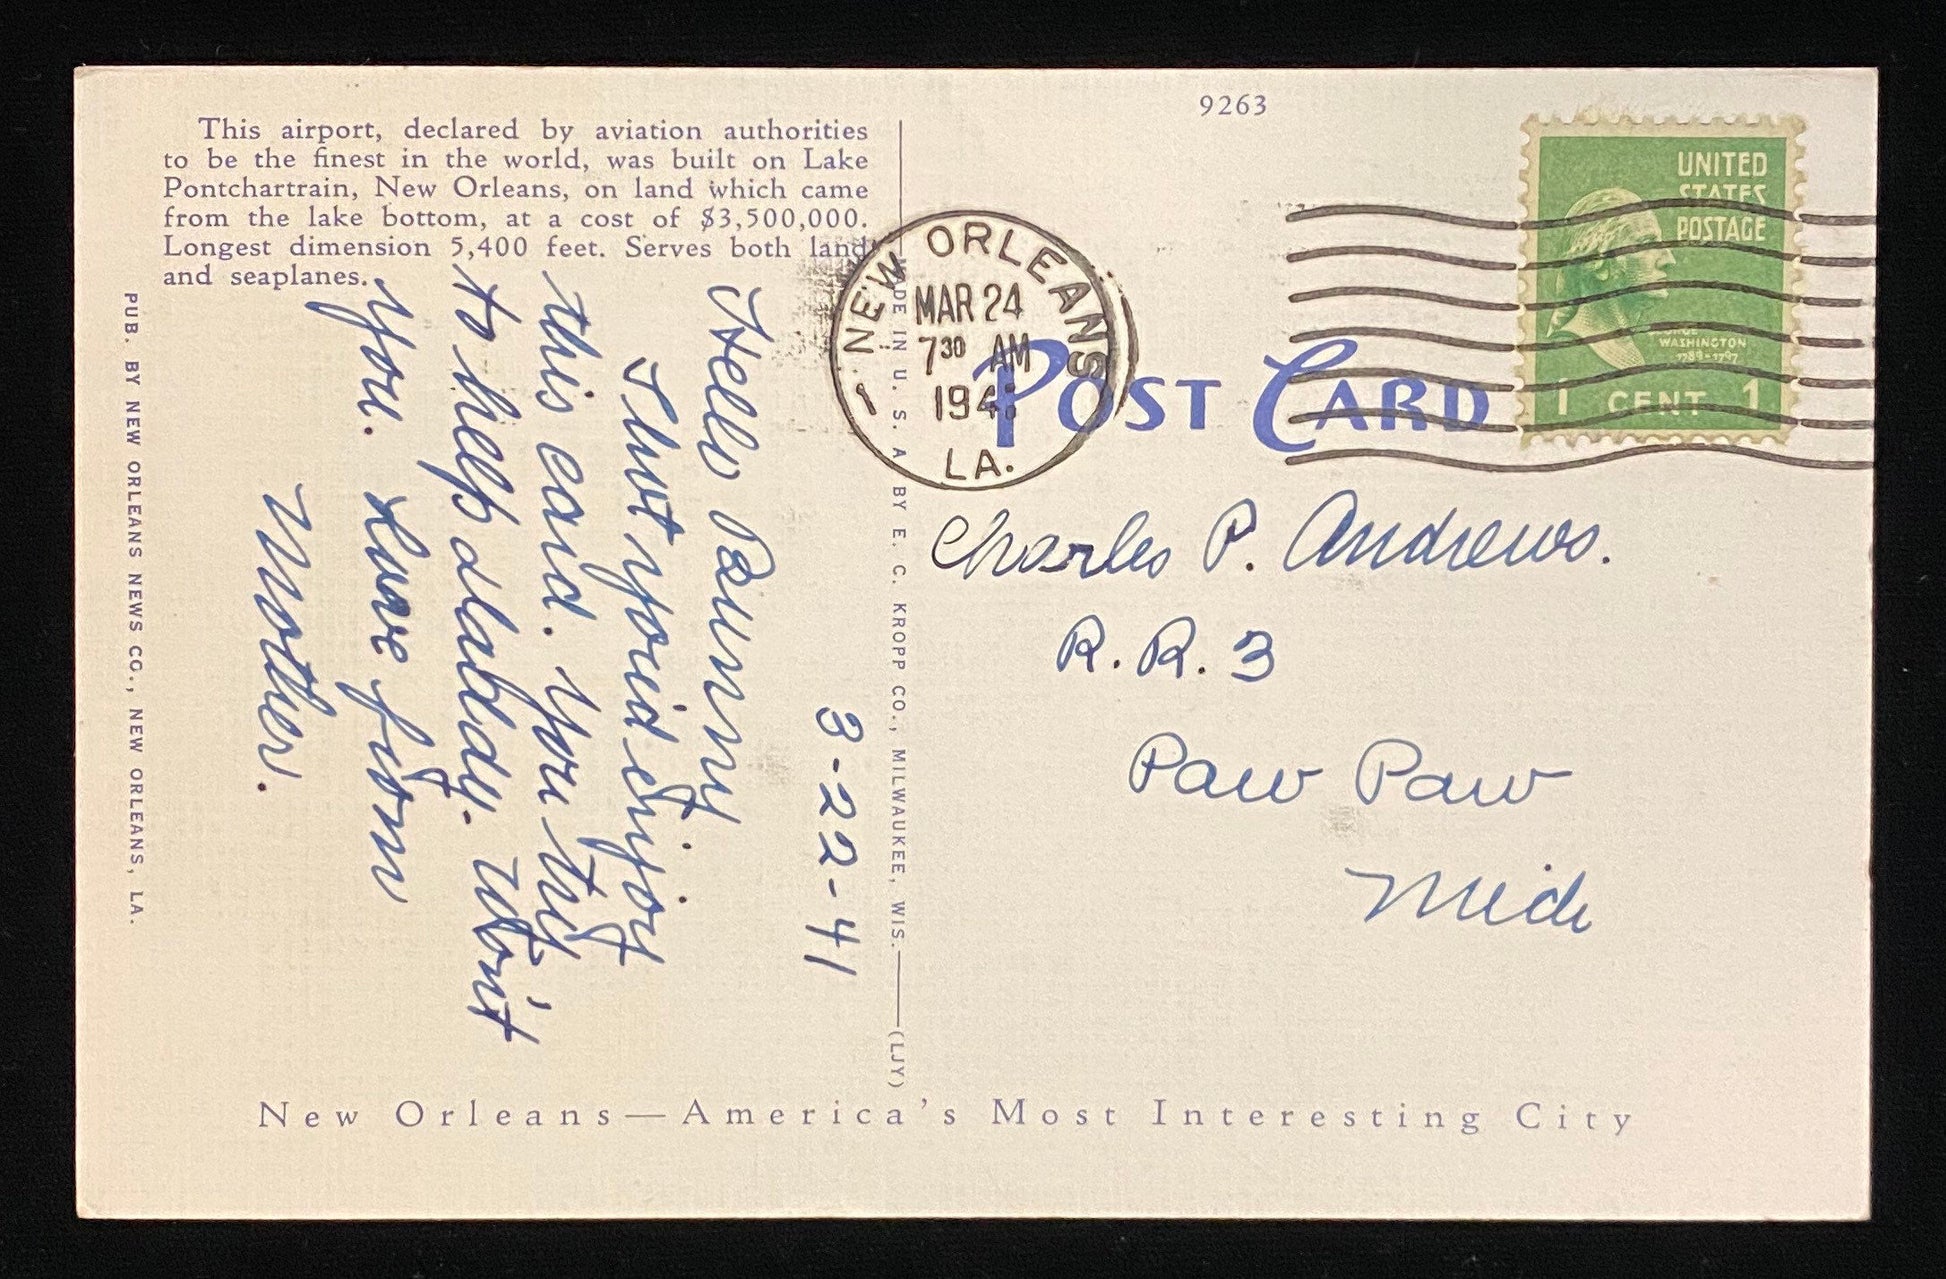 This airport, declared by aviation authorities
to be the finest in the world, was built on Lake
Pontchartrain, New Orleans, on land which came
from the lake bottom, at a cost of $3,500,000.
Longest dimension 5,400 feet. Serves both land
and seaplanes.
PUB. BY NEW ORLEANS NEWS CO., NEW ORLEANS, LA.
3-22-41
Hello Bunny
Thot you'd enjoy
this card. You try
to help dladdy. won't
you. Love from
Mother.
MADE IN U. S. A BY E. C. KROPP CO., MILWAUKEE, WIS.
(LJY)
9263
NEW ORLEANS
MAR 24
7 30 AM
194
LA.
POST CARD
UNITED
STATES
POSTAGE
WASHINGTON
1789-1797
1 CENT 1
Charles P. Andrews.
R. R. 3
Paw Paw
Mich
New Orleans—America's Most Interesting City